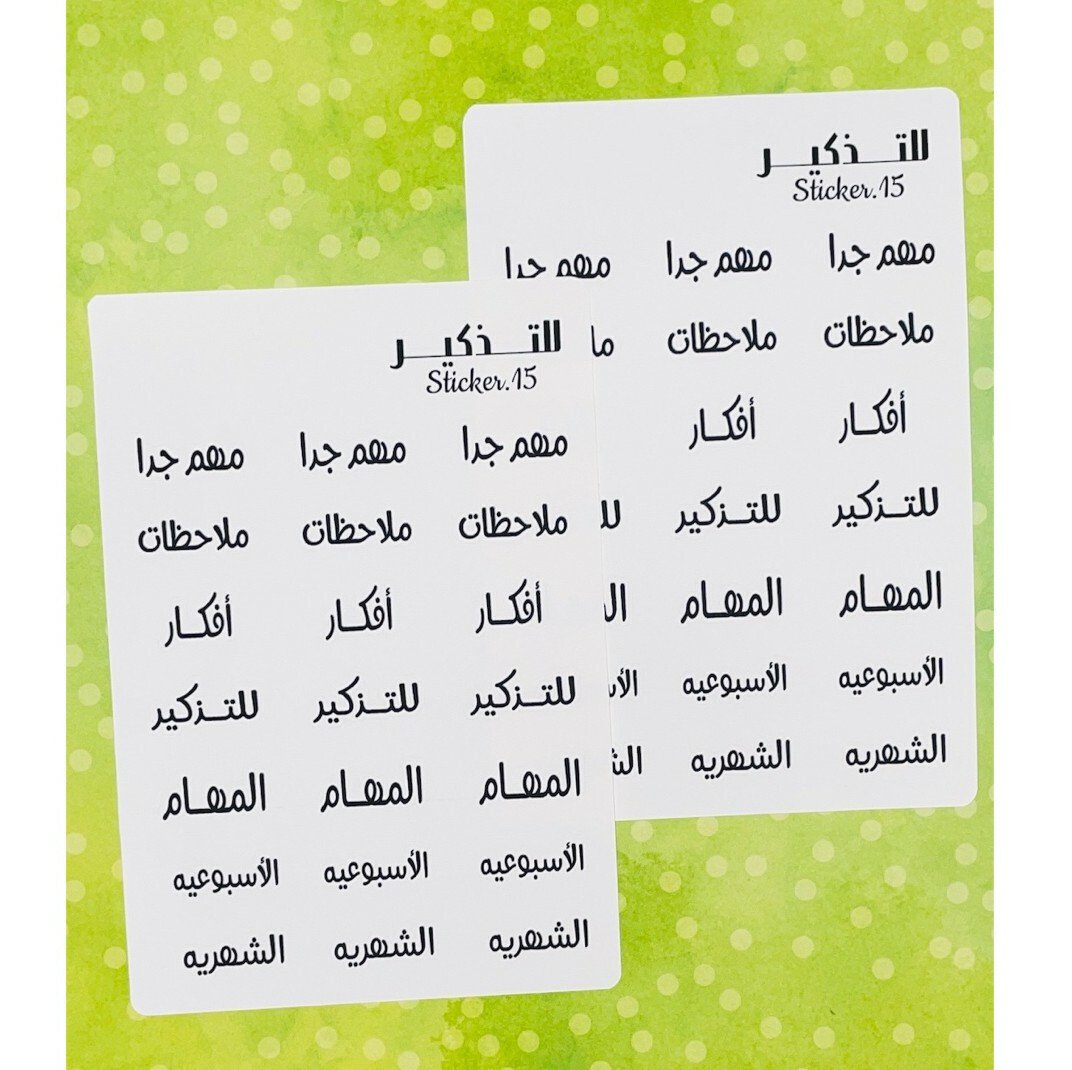 للتـــذكيـــر
Sticker.15
مهم جدا مهم جدا مهم جدا
ملاحظات ملاحظات
أفكـار أفكـار
للتـزكير للتـزكير
المهـام المهـام
الأسبوعيه الأسبوعيه
الشهريه الشهريه
للتـــذكيـــر
Sticker.15
مهم جدا مهم جدا مهم جدا
ملاحظات ملاحظات ملاحظات
أفكـار أفكـار أفكـار
للتـزكير للتـزكير للتـزكير
المهـام المهـام المهـام
الأسبوعيه الأسبوعيه الأسبوعيه
الشهريه الشهريه الشهريه